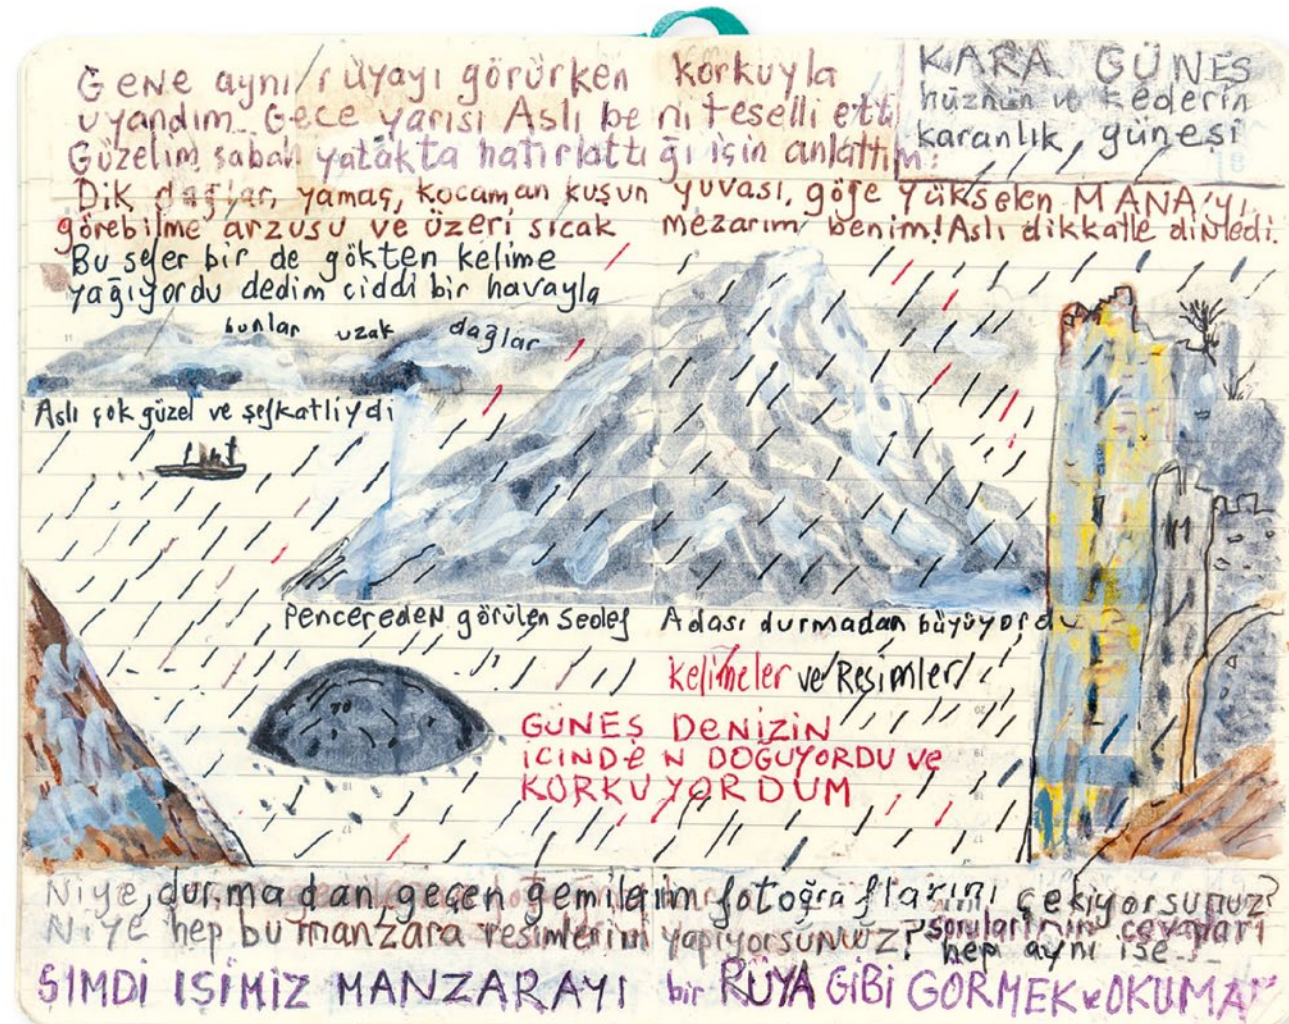 Gene aynı rüyayı görürken korkuyla
uyandım. Gece yarısı Aslı beni teselli etti
Güzelim sabah yatakta hatırlattığı için anlattım:
KARA GÜNEŞ
hüznün ve kederin
karanlık güneşi
Dik dağlar, yamaç, kocaman kuşun yuvası, göğe yükselen MANA'yı
görebilme arzusu ve üzeri sıcak mezarım benim! Aslı dikkatle dinledi.
Bu sefer bir de gökten kelime
yağıyordu dedim ciddi bir havayla
bunlar uzak dağlar
Aslı çok güzel ve şefkatliydi
Pencereden görülen Sedef Adası durmadan büyüyordu
Kelimeler ve Resimler
GÜNEŞ DENİZİN
İÇİNDEN DOĞUYORDU ve
KORKUYORDUM
Niye, durmadan, geçen gemilerin fotoğraflarını çekiyorsunuz?
Niye hep bu manzara resimlerini yapıyorsunuz? sorularının cevapları
hep aynı ise...
ŞİMDİ İŞİMİZ MANZARAYI bir RÜYA GİBİ GÖRMEK ve OKUMAK